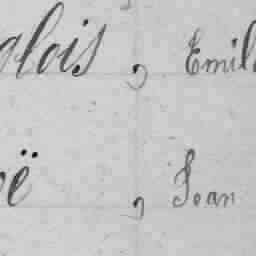 glois, Emil
oë, Jean